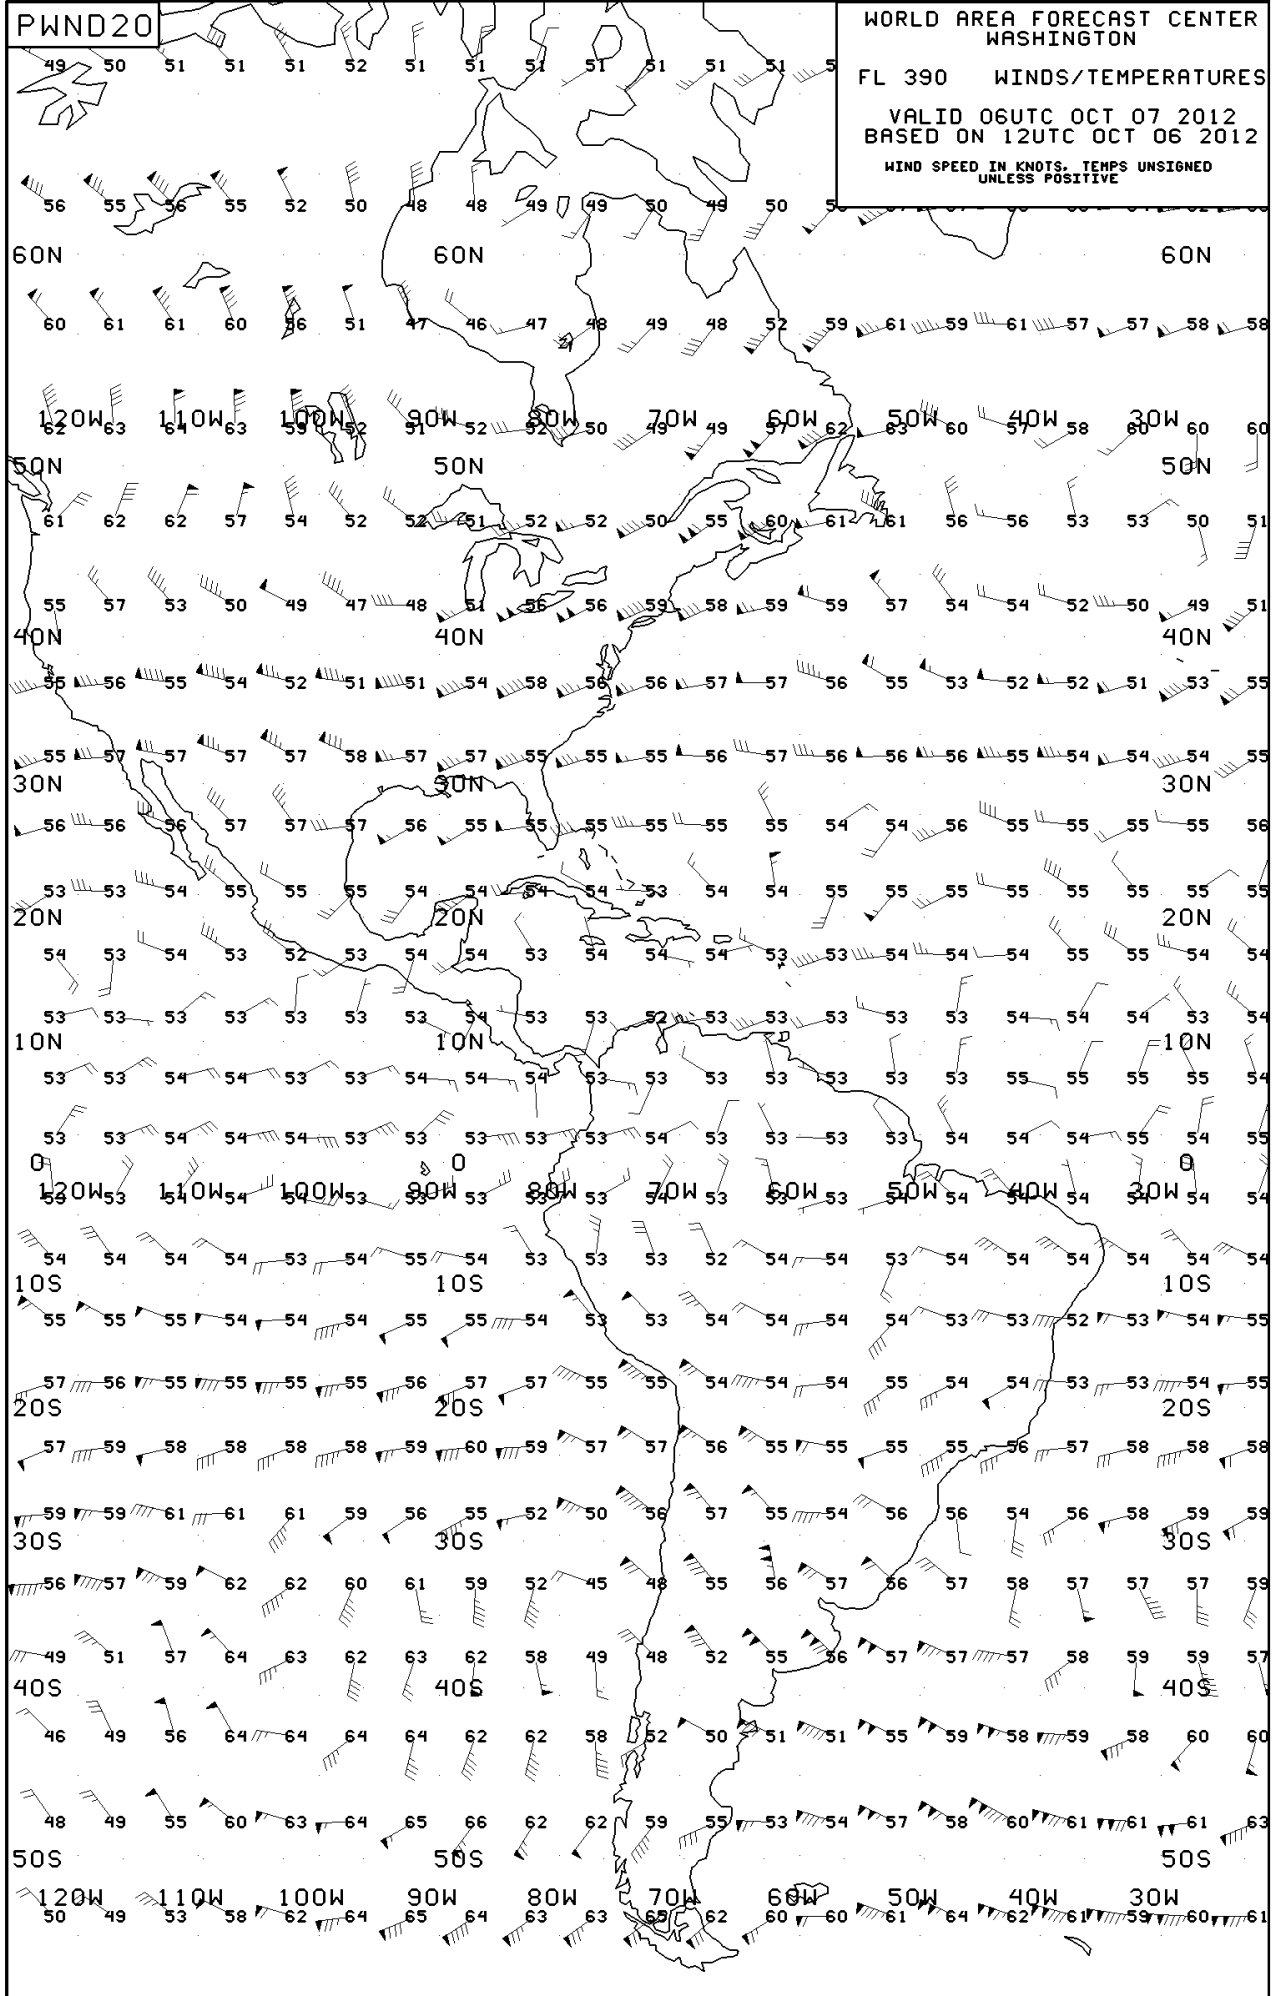 PWND20
WORLD AREA FORECAST CENTER
WASHINGTON
FL 390 WINDS/TEMPERATURES
VALID 06UTC OCT 07 2012
BASED ON 12UTC OCT 06 2012
WIND SPEED IN KNOTS, TEMPS UNSIGNED
UNLESS POSITIVE
49 50 51 51 51 52 51 51 51 51 51 51 51
56 55 56 55 52 50 48 48 49 49 50 49 50
60N 60N 60N
60 61 61 60 56 51 47 46 47 48 49 48 52 59 61 59 61 57 57 58 58
120W 110W 100W 90W 80W 70W 60W 50W 40W 30W
62 63 64 63 59 52 51 52 52 50 49 49 57 62 63 60 57 58 60 60 60
50N 50N 50N
61 62 62 57 54 52 52 51 52 52 50 55 60 61 61 56 56 53 53 50 51
55 57 53 50 49 47 48 51 56 56 59 58 59 59 57 54 54 52 50 49 51
40N 40N 40N
55 56 55 54 52 51 51 54 58 56 56 57 57 56 55 53 52 52 51 53 55
55 57 57 57 57 58 57 57 55 55 55 56 57 56 56 56 55 54 54 54 55
30N 30N 30N
56 56 56 57 57 57 56 55 55 55 55 55 55 54 54 56 55 55 55 55 56
53 53 54 55 55 55 54 54 54 54 53 54 54 55 55 55 55 55 55 55 55
20N 20N 20N
54 53 54 53 52 53 54 54 53 54 54 54 53 53 54 54 54 55 55 54 54
53 53 53 53 53 53 53 54 53 53 52 53 53 53 53 53 54 54 54 53 54
10N 10N 10N
53 53 54 54 53 53 54 54 54 53 53 53 53 53 53 53 55 55 55 55 54
53 53 54 54 54 53 53 53 53 53 54 53 53 53 53 54 54 54 55 54 55
0 0 0
120W 110W 100W 90W 80W 70W 60W 50W 40W 30W
53 53 54 54 54 53 53 53 53 53 54 53 53 53 54 54 54 54 54 54 54
54 54 54 54 53 54 55 54 53 53 53 52 54 54 53 54 54 54 54 54 54
10S 10S 10S
55 55 55 54 54 54 55 55 54 53 53 54 54 54 54 53 53 52 53 54 55
57 56 55 55 55 55 56 57 57 55 55 54 54 54 55 54 54 53 53 54 55
20S 20S 20S
57 59 58 58 58 58 59 60 59 57 57 56 55 55 55 55 56 57 58 58 58
59 59 61 61 61 59 56 55 52 50 56 57 55 54 56 56 54 56 58 59 59
30S 30S 30S
56 57 59 62 62 60 61 59 52 45 48 55 56 57 56 57 58 57 57 57 59
49 51 57 64 63 62 63 62 58 49 48 52 55 56 57 57 57 58 59 59 57
40S 40S 40S
46 49 56 64 64 64 64 62 62 58 52 50 51 51 55 59 58 59 58 60 60
48 49 55 60 63 64 65 66 62 62 59 55 53 54 57 58 60 61 61 61 63
50S 50S 50S
120W 110W 100W 90W 80W 70W 60W 50W 40W 30W
50 49 53 58 62 64 65 64 63 63 65 62 60 60 61 64 62 61 59 60 61